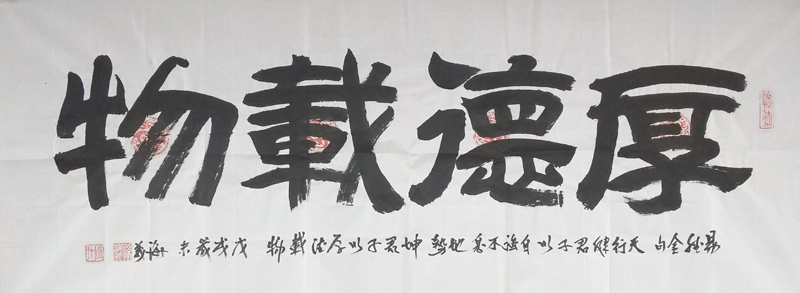 厚德載物
易經全句 天行健君子以自強不息 地勢坤君子以厚德載物 戊戌歲末 海